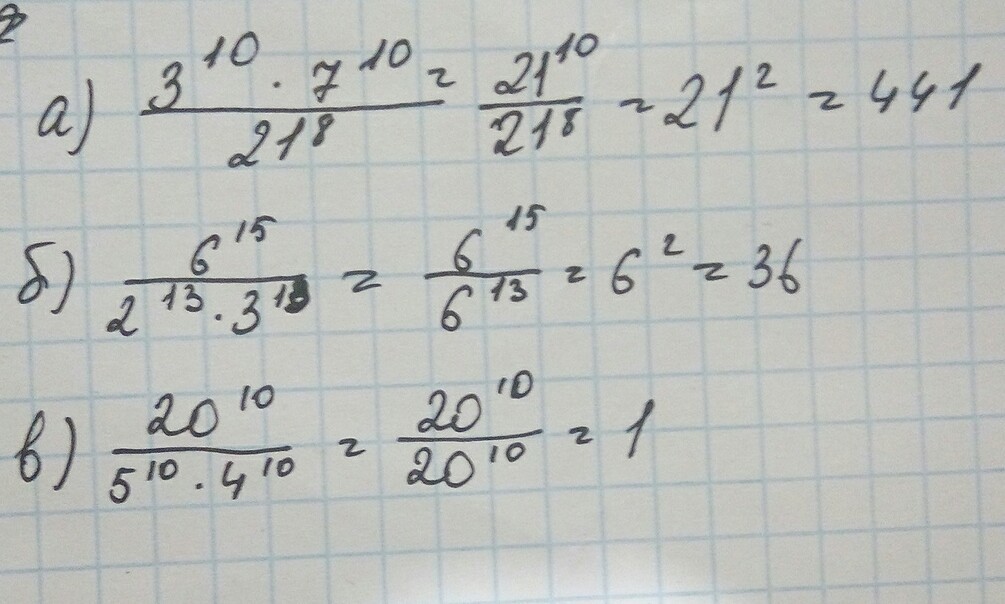 а) (3^10 · 7^10)/21^8 = 21^10/21^8 = 21^2 = 441
б) 6^15/(2^13 · 3^13) = 6^15/6^13 = 6^2 = 36
в) 20^10/(5^10 · 4^10) = 20^10/20^10 = 1